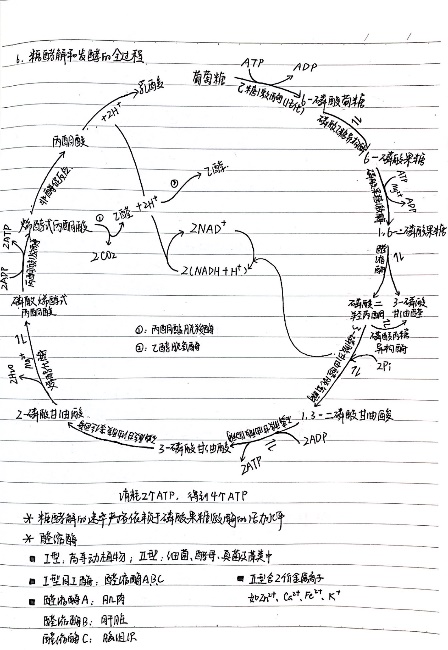 6. 糖酵解和发酵的全过程
ATP
ADP
葡萄糖
己糖激酶(Mg²⁺)
6-磷酸葡萄糖
磷酸己糖异构酶
6-磷酸果糖
磷酸果糖激酶
ATP
Mg²⁺
ADP
1,6-二磷酸果糖
醛缩酶
磷酸二羟丙酮
3-磷酸甘油醛
磷酸丙糖异构酶
2Pi
3-磷酸甘油醛脱氢酶
1,3-二磷酸甘油酸
2ADP
2ATP
3-磷酸甘油酸
2-磷酸甘油酸
Mg²⁺
2H₂O
磷酸烯醇式丙酮酸
2ADP
2ATP
丙酮酸激酶
烯醇式丙酮酸
非酶促反应
丙酮酸
+2H⁺
乳酸
①
2CO₂
乙醛 +2H⁺
②
乙醇
2NAD⁺
2(NADH+H⁺)
①:丙酮酸脱羧酶
②:乙醇脱氢酶
消耗2个ATP,得到4个ATP
* 糖酵解的速率严格依赖于磷酸果糖激酶的活力水平
* 醛缩酶
■ I型:高等动植物;II型:细菌、酵母、真菌及藻类中
■ I型同工酶:醛缩酶ABC
■ II型含2价金属离子
如Zn²⁺、Ca²⁺、Fe²⁺、K⁺
■ 醛缩酶A:肌肉
醛缩酶B:肝脏
醛缩酶C:脑组织